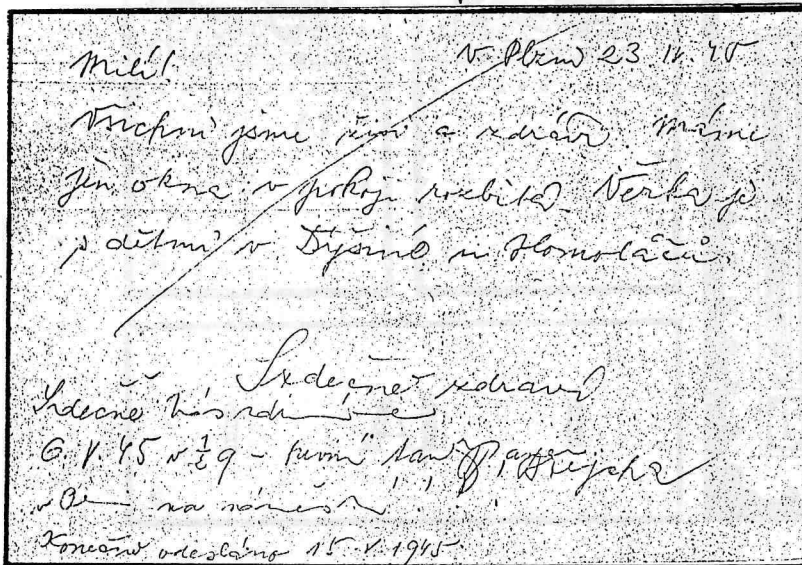 Milí! V Plzni 23 IV. 45
Všichni jsme živi a zdrávi. Máme
jen okna v pokoji rozbitá. Věrka je
s dětmi v Dýšině u Homoláčů.
Srdečně zdraví
Srdečně Vás zdravíme
6. V. 45 v ½ 9 - první
na náměstí!
Konečně odesláno 15 V 1945